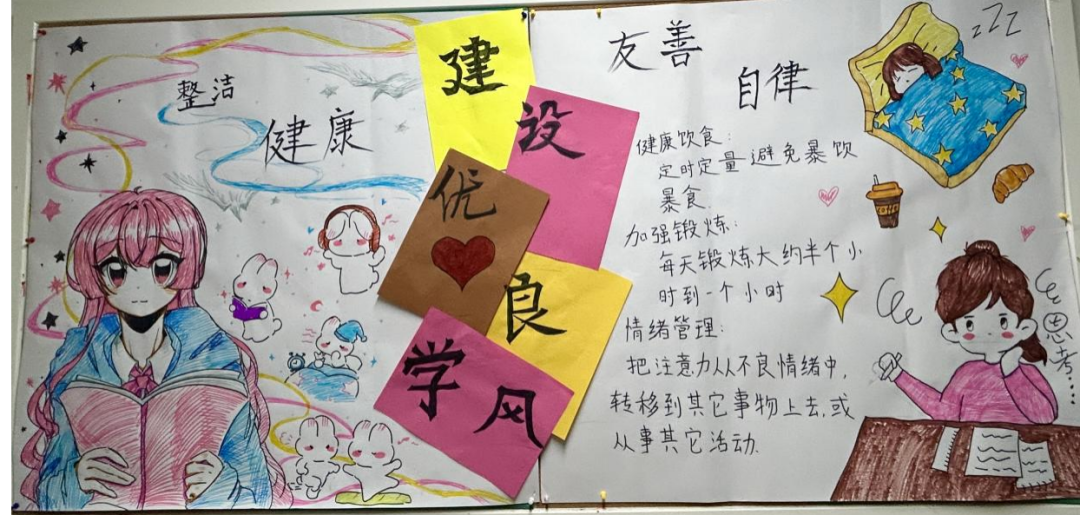 整洁
健康
建
设
优
良
学
风
友善
自律
健康饮食:
定时定量避免暴饮
暴食.
加强锻炼:
每天锻炼大约半个小
时到一个小时
情绪管理:
把注意力从不良情绪中,
转移到其它事物上去,或
从事其它活动.
ZZZ
思考...